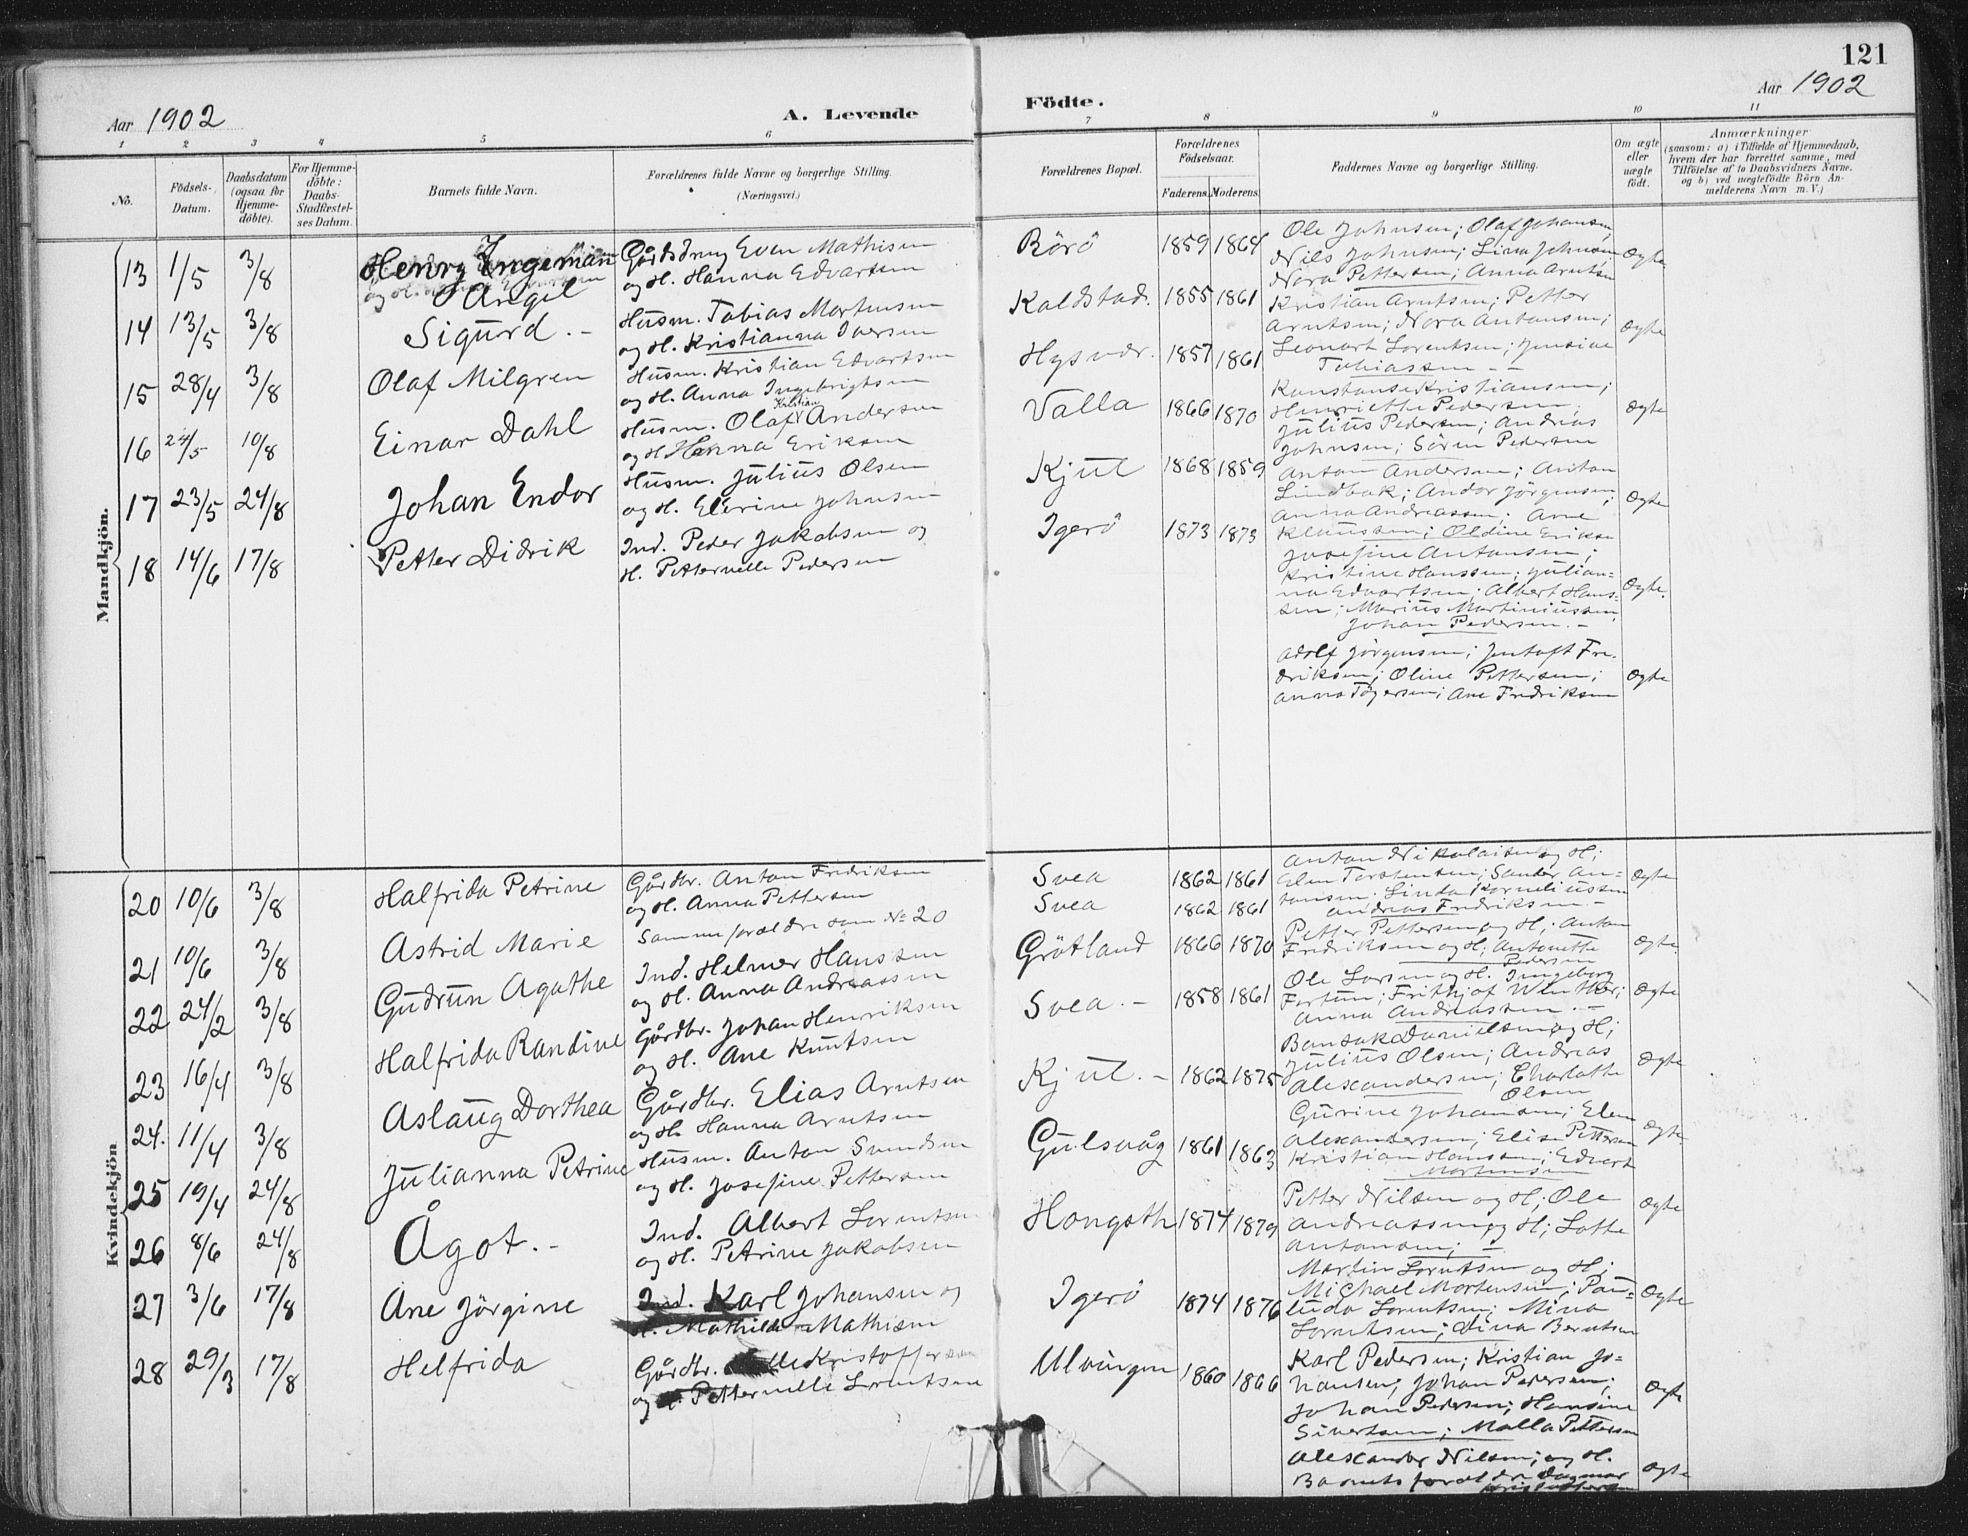 121
Aar 1902
A. Levende
Födte.
Aar 1902
1 2 3 4 5 6
7 8 9 10 11
No.
Födsels-Datum.
Daabsdatum (ogsaa for Hjemme-döbte).
For Hjemme-döbte: Daabs-Stadfæstel-ses Datum.
Barnets fulde Navn.
Forældrenes fulde Navne og borgerlige Stilling.
(Næringsvei.)
Forældrenes Bopæl.
Forældrenes Födselsaar.
Faderens. Moderens.
Faddernes Navne og borgerlige Stilling.
Om ægte eller uægte födt.
Anmærkninger
(saasom: a) i Tilfælde af Hjemmedaab,
hvem der har forrettet samme, med
Tilföielse af to Daabsvidners Navne.
og b) ved uægtefödte Börn An-
melderens Navn m. V.)
Mandkjön.
13 1/5 3/8 Henry Ingeman Angel
Gårdbrug Even Mathisen
og H. Hanna Edvartsen
14 13/5 3/8 Sigurd. -
Husm. Tobias Mortensen
og H. Kristianna Iversen
15 28/4 3/8 Olaf Milgren
Husm. Kristian Edvartsen
og H. Anna Ingebrigtsen
16 24/5 10/8 Einar Dahl
Husm. Olaf Kristian Andersen
og H. Hanna Eriksen
17 23/5 24/8 Johan Endor
Husm. Julius Olsen
og H. Elerine Johnsen
18 14/6 17/8 Petter Didrik
Ind. Peder Jakobsen og
H. Petternelle Pedersen
Rörö 1859 1864
Kaldstad. 1855 1861
Hysvær. 1857 1861
Valla 1866 1870
Kjul 1868 1859
Igerö 1873 1873
Ole Johnsen; Olaf Johansen,
Nils Johnsen; Lina Johnsen Ægte
Nora Pettersen; Anna Arntsen
Kristian Arntsen; Petter
Arntsen; Nora Antonsen; Ægte
Leonart Lorentsen; Jensine
Tobiassen - -
Konstanse Kristiansen;
Henriette Pedersen; Ægte
Julius Pedersen; Andreas
Johnsen; Sören Pedersen
Anton Andersen; Anton
Lindbak; Andor Jörgensen, Ægte
Anna Andreassen; Ane
Klaussen; Oldine Eriksen
Josefine Antonsen;
Kristine Hanssen; Julian-
na Edvartsen; Albert Hans- Ægte.
sen; Marius Martiniussen,
Johan Pedersen. -
Adolf Jörgensen; Jentoft Fre-
driksen; Oline Pettersen; Ægte
Anna Tögersen; Ane Fredriksen
Kvindekjön
20 10/6 3/8 Halfrida Petrine
Gårdbr. Anton Fredriksen
og H. Anna Pettersen
21 10/6 3/8 Astrid Marie
Samme forældre som No 20
22 24/2 3/8 Gudrun Agathe
Ind. Helmer Hanssen
og H. Anna Andreassen
23 16/4 3/8 Halfrida Randine
Gårdbr. Johan Henriksen
og H. Ane Knutsen
24. 11/4 3/8 Aslaug Dorthea
Gårdbr. Elias Arntsen
og H. Hanna Arntsen
25 19/4 24/8 Julianna Petrine
Husm. Anton Svendsen
og H. Josefine Pettersen
26 8/6 24/8 Ågot. -
Ind. Albert Lorentsen
og H. Petrine Jakobsen
27 3/6 17/8 Ane Jörgine
Ind. Karl Johansen og
H. Mathilde Mathisen
28 29/3 17/8 Helfrida
Gårdbr. Kristoffersen
og Petternelle Lorentsen
Svea 1862 1861
Svea 1862 1861
Grötland 1866 1870
Svea. - 1858 1861
Kjul. - 1862 1875
Gulsvåg 1861 1863
Hongsth 1874 1879
Igerö 1874 1876
Ulvingen 1860 1866
Anton Nikolaisen og H;
Elen Torstensen; Sander An- Ægte
tonsen; Linda Korneliussen
Andreas Fredriksen. -
Petter Pettersen og H; Anton
Fredriksen og H; Antonette Ægte
Pedersen
Ole Larsen og H. Ingeborg
Fortun; Frithjof Winther; Ægte
Anna Andreassen. -
Danielsen og H;
Julius Olsen; Andreas Ægte
Alexandersen; Charlotte
Olsen
Gurine Johansen; Elen
Alexandersen; Elise Pettersen Ægte
Kristian Hansen; Edvart
Mortensen
Petter Nilsen og H; Ole Ægte
Andreassen og H; Lotte
Antonsen; -
Martin Lorentsen og H;
Michael Mortensen; Pau- Ægte
lude Lorentsen; Mina
Lorentsen; Dina Berntsen
Karl Pedersen; Kristian Jo-
hansen; Johan Pedersen; Ægte
Johan Pedersen; Hansine
Sivertsen; Malla Pettersen
Alexander Nilsen; og H. Ægte
Barnets forældre Dagmar
Kristoffersen